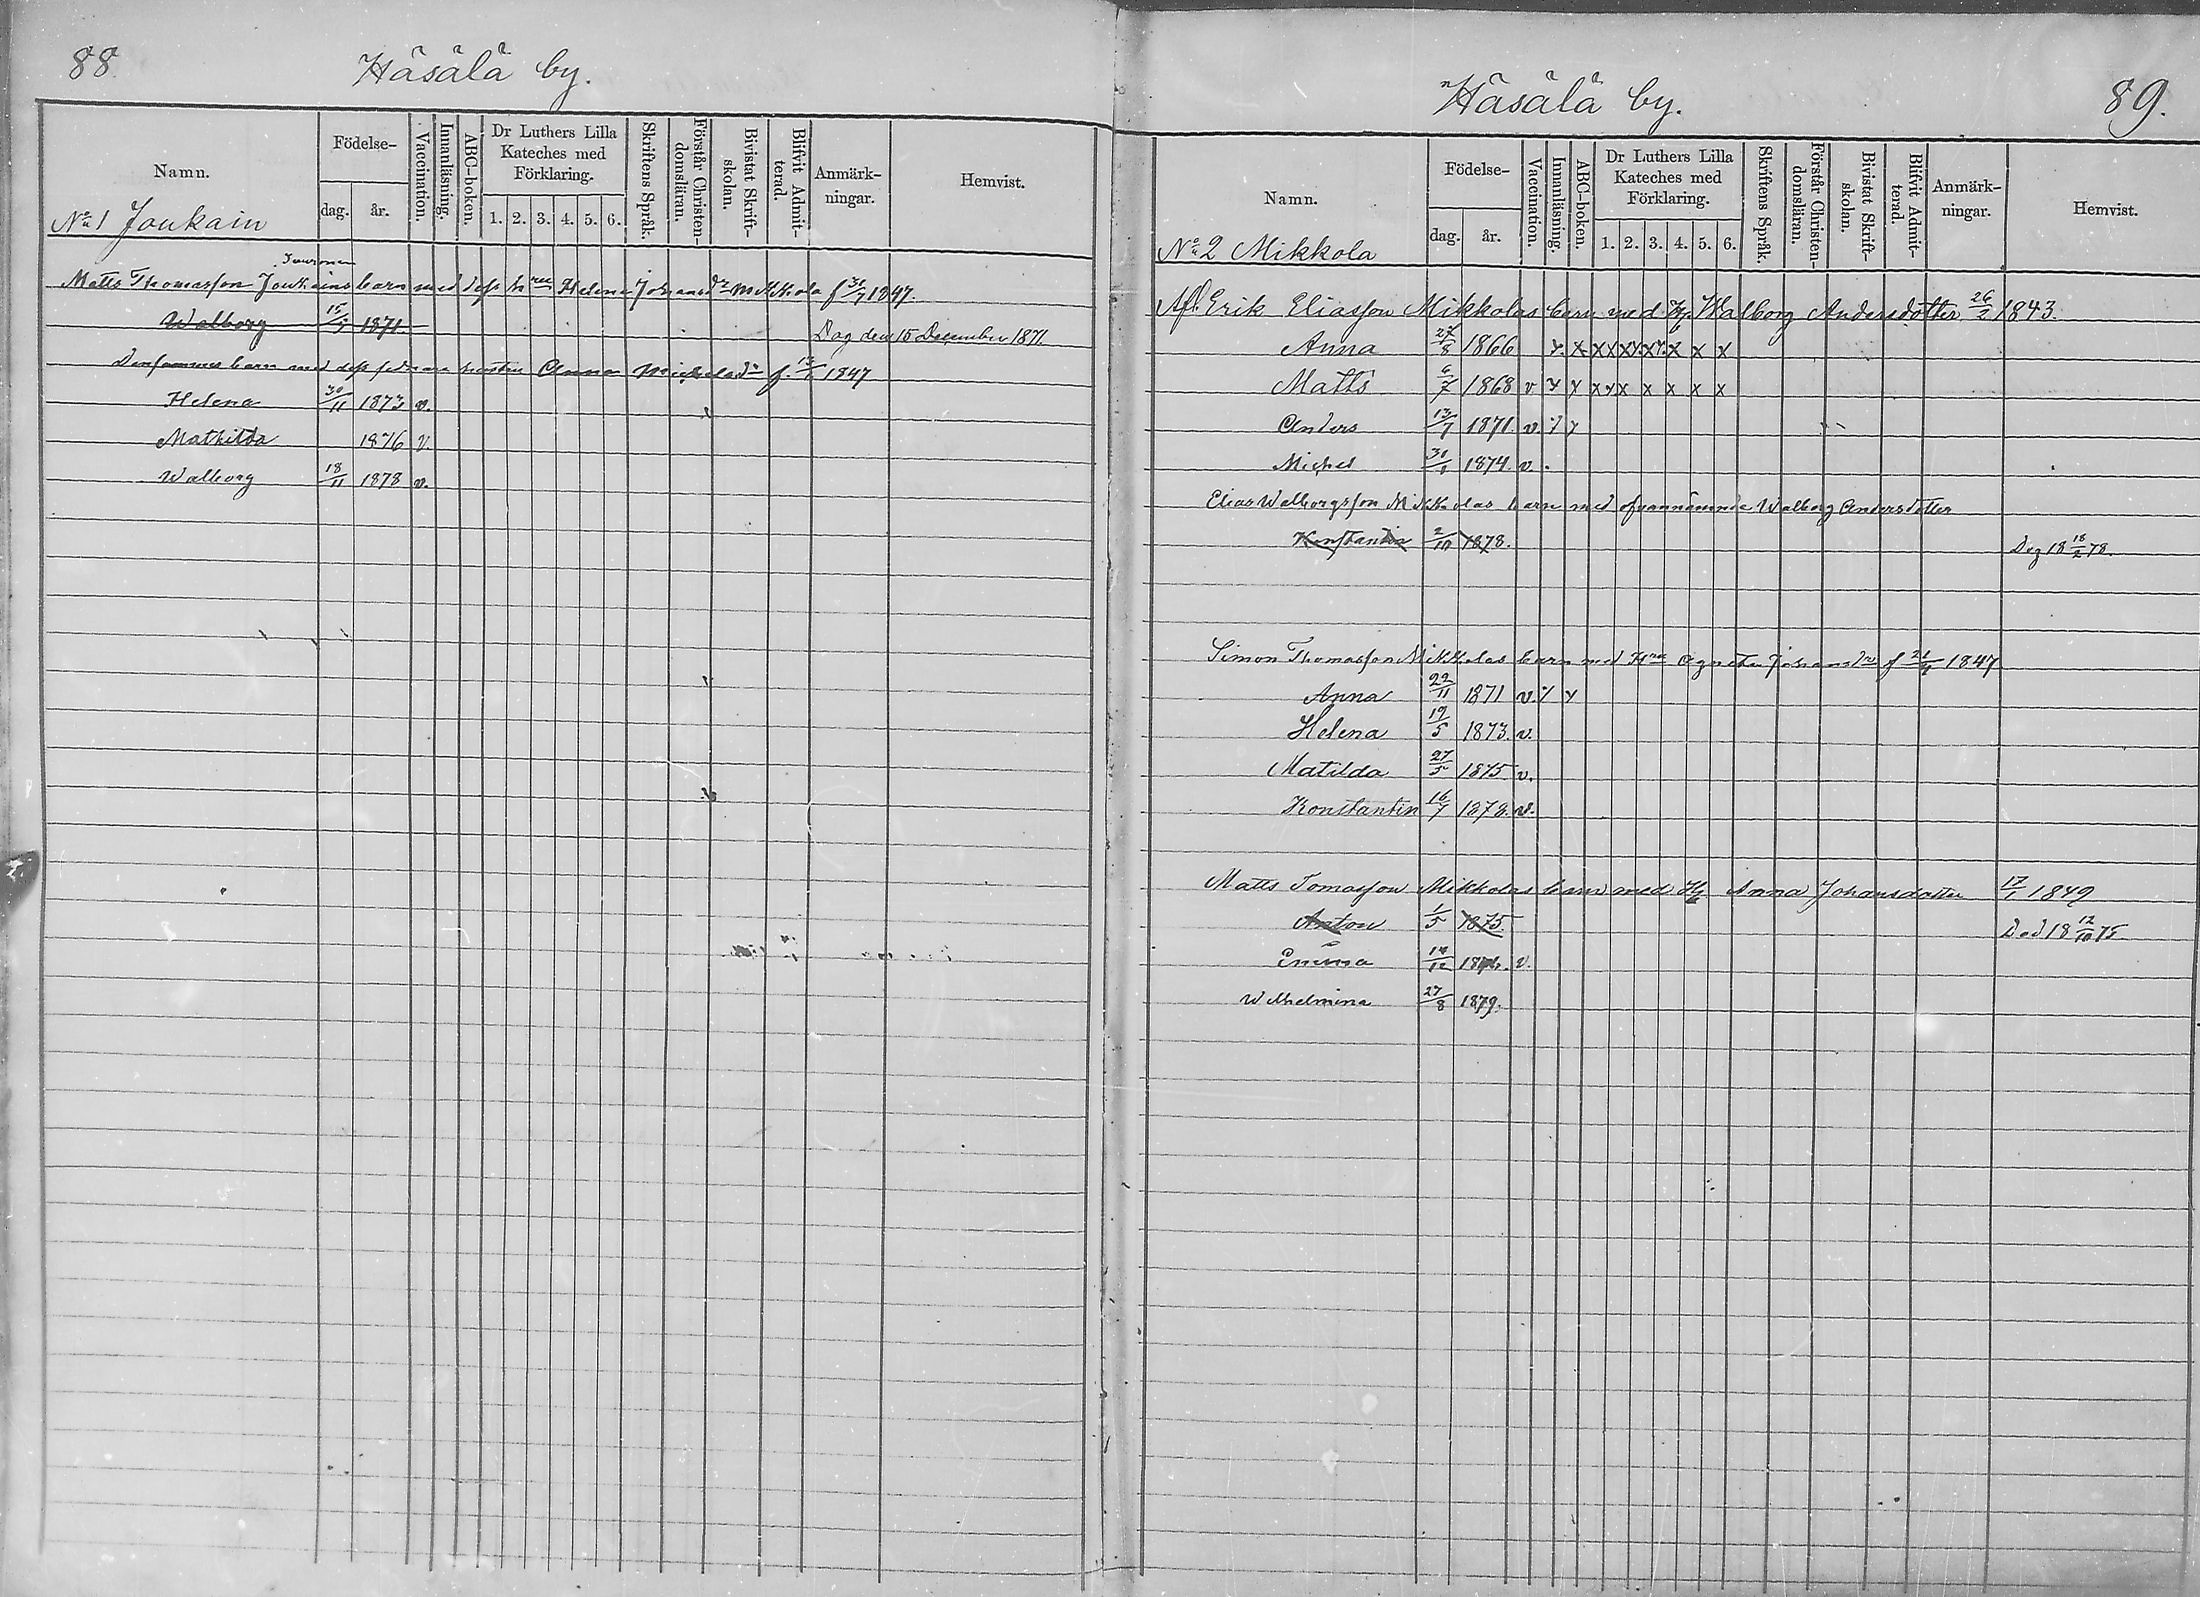 88.
Häsälä by.
Namn.
Födelse-
dag.
år.
Vaccination.
Innanläsning.
ABC-boken.
Dr Luthers Lilla
Kateches med
Förklaring.
1. 2. 3. 4. 5. 6.
Skriftens Språk.
Förstår Christen-
domsläran.
Bivistat Skrift-
skolan.
Blifvit Admit-
terad.
Anmärk-
ningar.
Hemvist.
No 1 Joukain
Matts Thomasson Joukains barn med dess hru Helena Johansdr Mikkola f 31/7 1847.
Walborg 15/5 1871. Dog den 15 December 1871.
Densammes barn med dess sednare hustru Anna Michelsdr f. 1847
Helena 30/11 1873 v.
Mathilda 1876 v.
Walborg 18/11 1878 v.
Häsälä by.
89.
Namn.
Födelse-
dag.
år.
Vaccination.
Innanläsning.
ABC-boken.
Dr Luthers Lilla
Kateches med
Förklaring.
1. 2. 3. 4. 5. 6.
Skriftens Språk.
Förstår Christen-
domsläran.
Bivistat Skrift-
skolan.
Blifvit Admit-
terad.
Anmärk-
ningar.
Hemvist.
No 2 Mikkola
Afl. Erik Eliasson Mikkolas barn med H. Walborg Andersdotter 26/2 1843.
Anna 27/8 1866 x x x x x x x x x x
Matts 6/7 1868 v x x x x x x x x x
Anders 13/7 1871. v. x x
Michel 1874. v.
Elias Walborgsson Mikkolas barn med ofvannämnde Walborg Andersdotter
Konstantin 2/10 1878. Dog 18 18/2 78.
Simon Thomasson Mikkolas barn med Hru Agneta Johansdr f 21/4 1847
Anna 22/11 1871 v. x x
Helena 19/5 1873. v.
Matilda 27/5 1875 v.
Konstantin 16/7 1878. v.
Matts Tomasson Mikkolas barn med H. Anna Johansdotter 17/1 1849
Anton 1/5 1875. Död 18 12/10 75
Emma v.
Wilhelmina 27/8 1879.